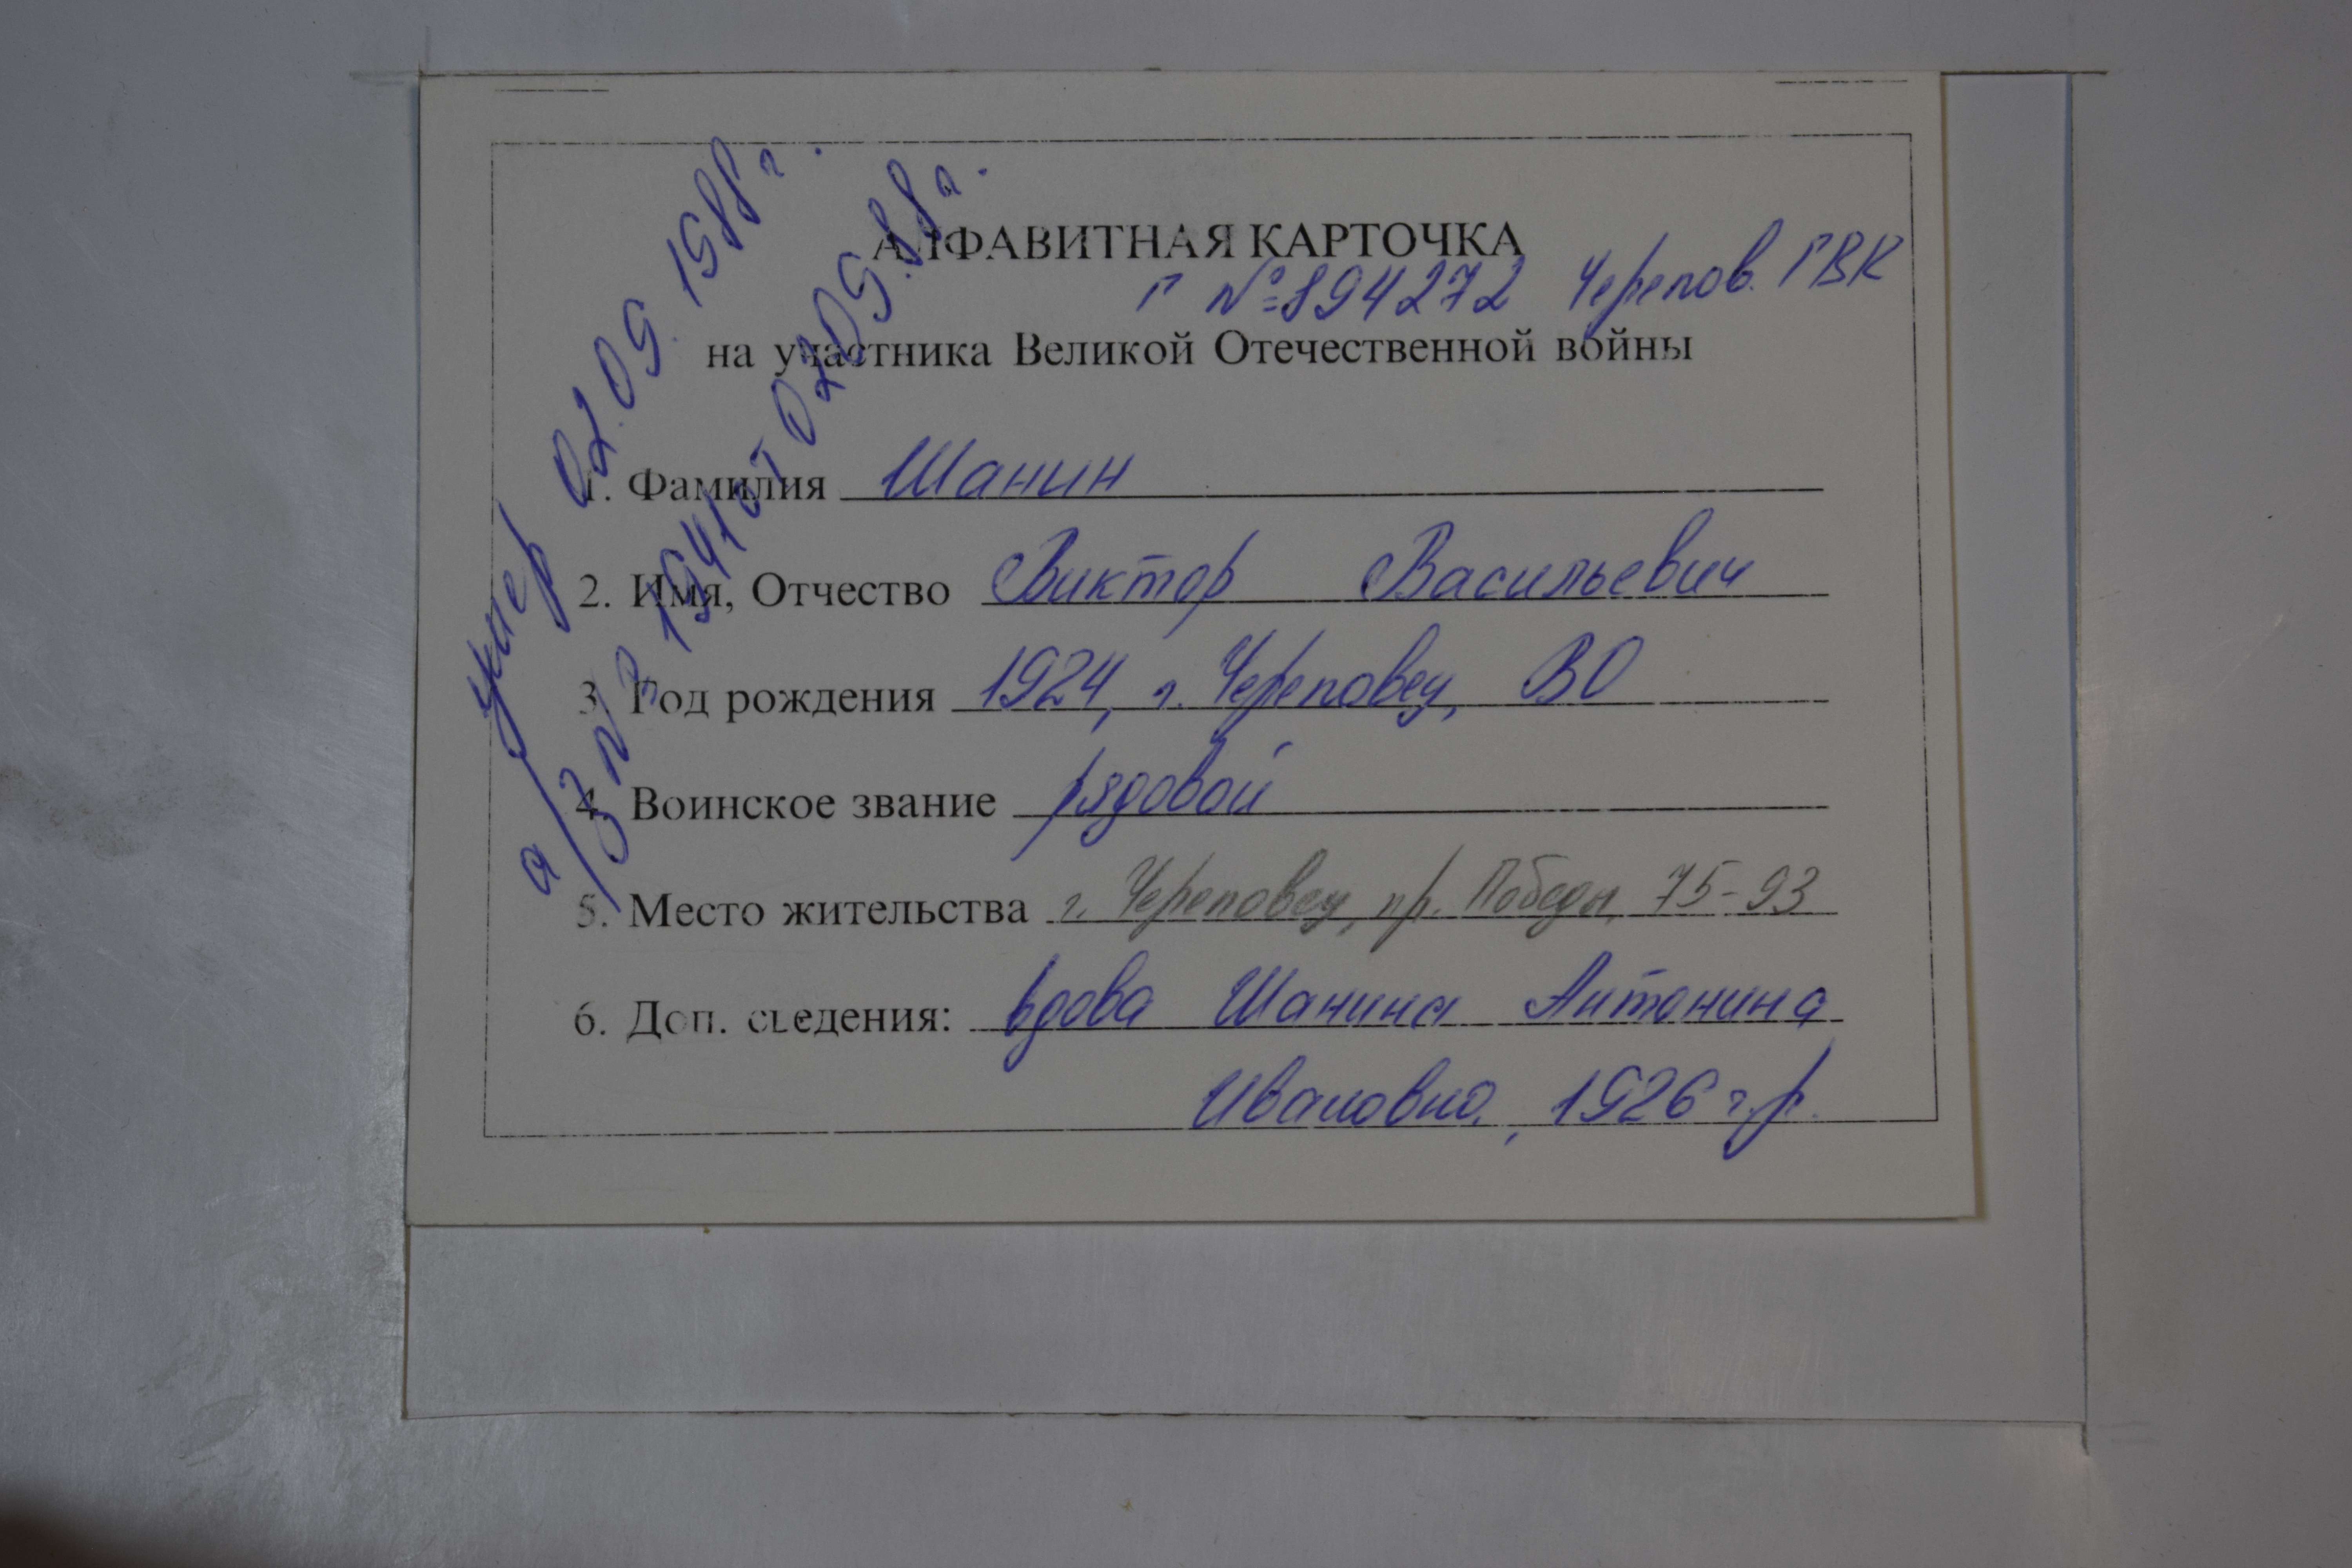 умер 02.09.1988г.
а/з № 1941 от 02.09.88г.
АЛФАВИТНАЯ КАРТОЧКА
Г №894272 Черепов. ГВК
на участника Великой Отечественной войны
1. Фамилия Шанин
2. Имя, Отчество Виктор Васильевич
3. Год рождения 1924, г. Череповец, ВО
4. Воинское звание рядовой
5. Место жительства г. Череповец, пр. Победы, 75-93
6. Доп. сведения: вдова Шанина Антонина
Ивановна, 1926 г.р.